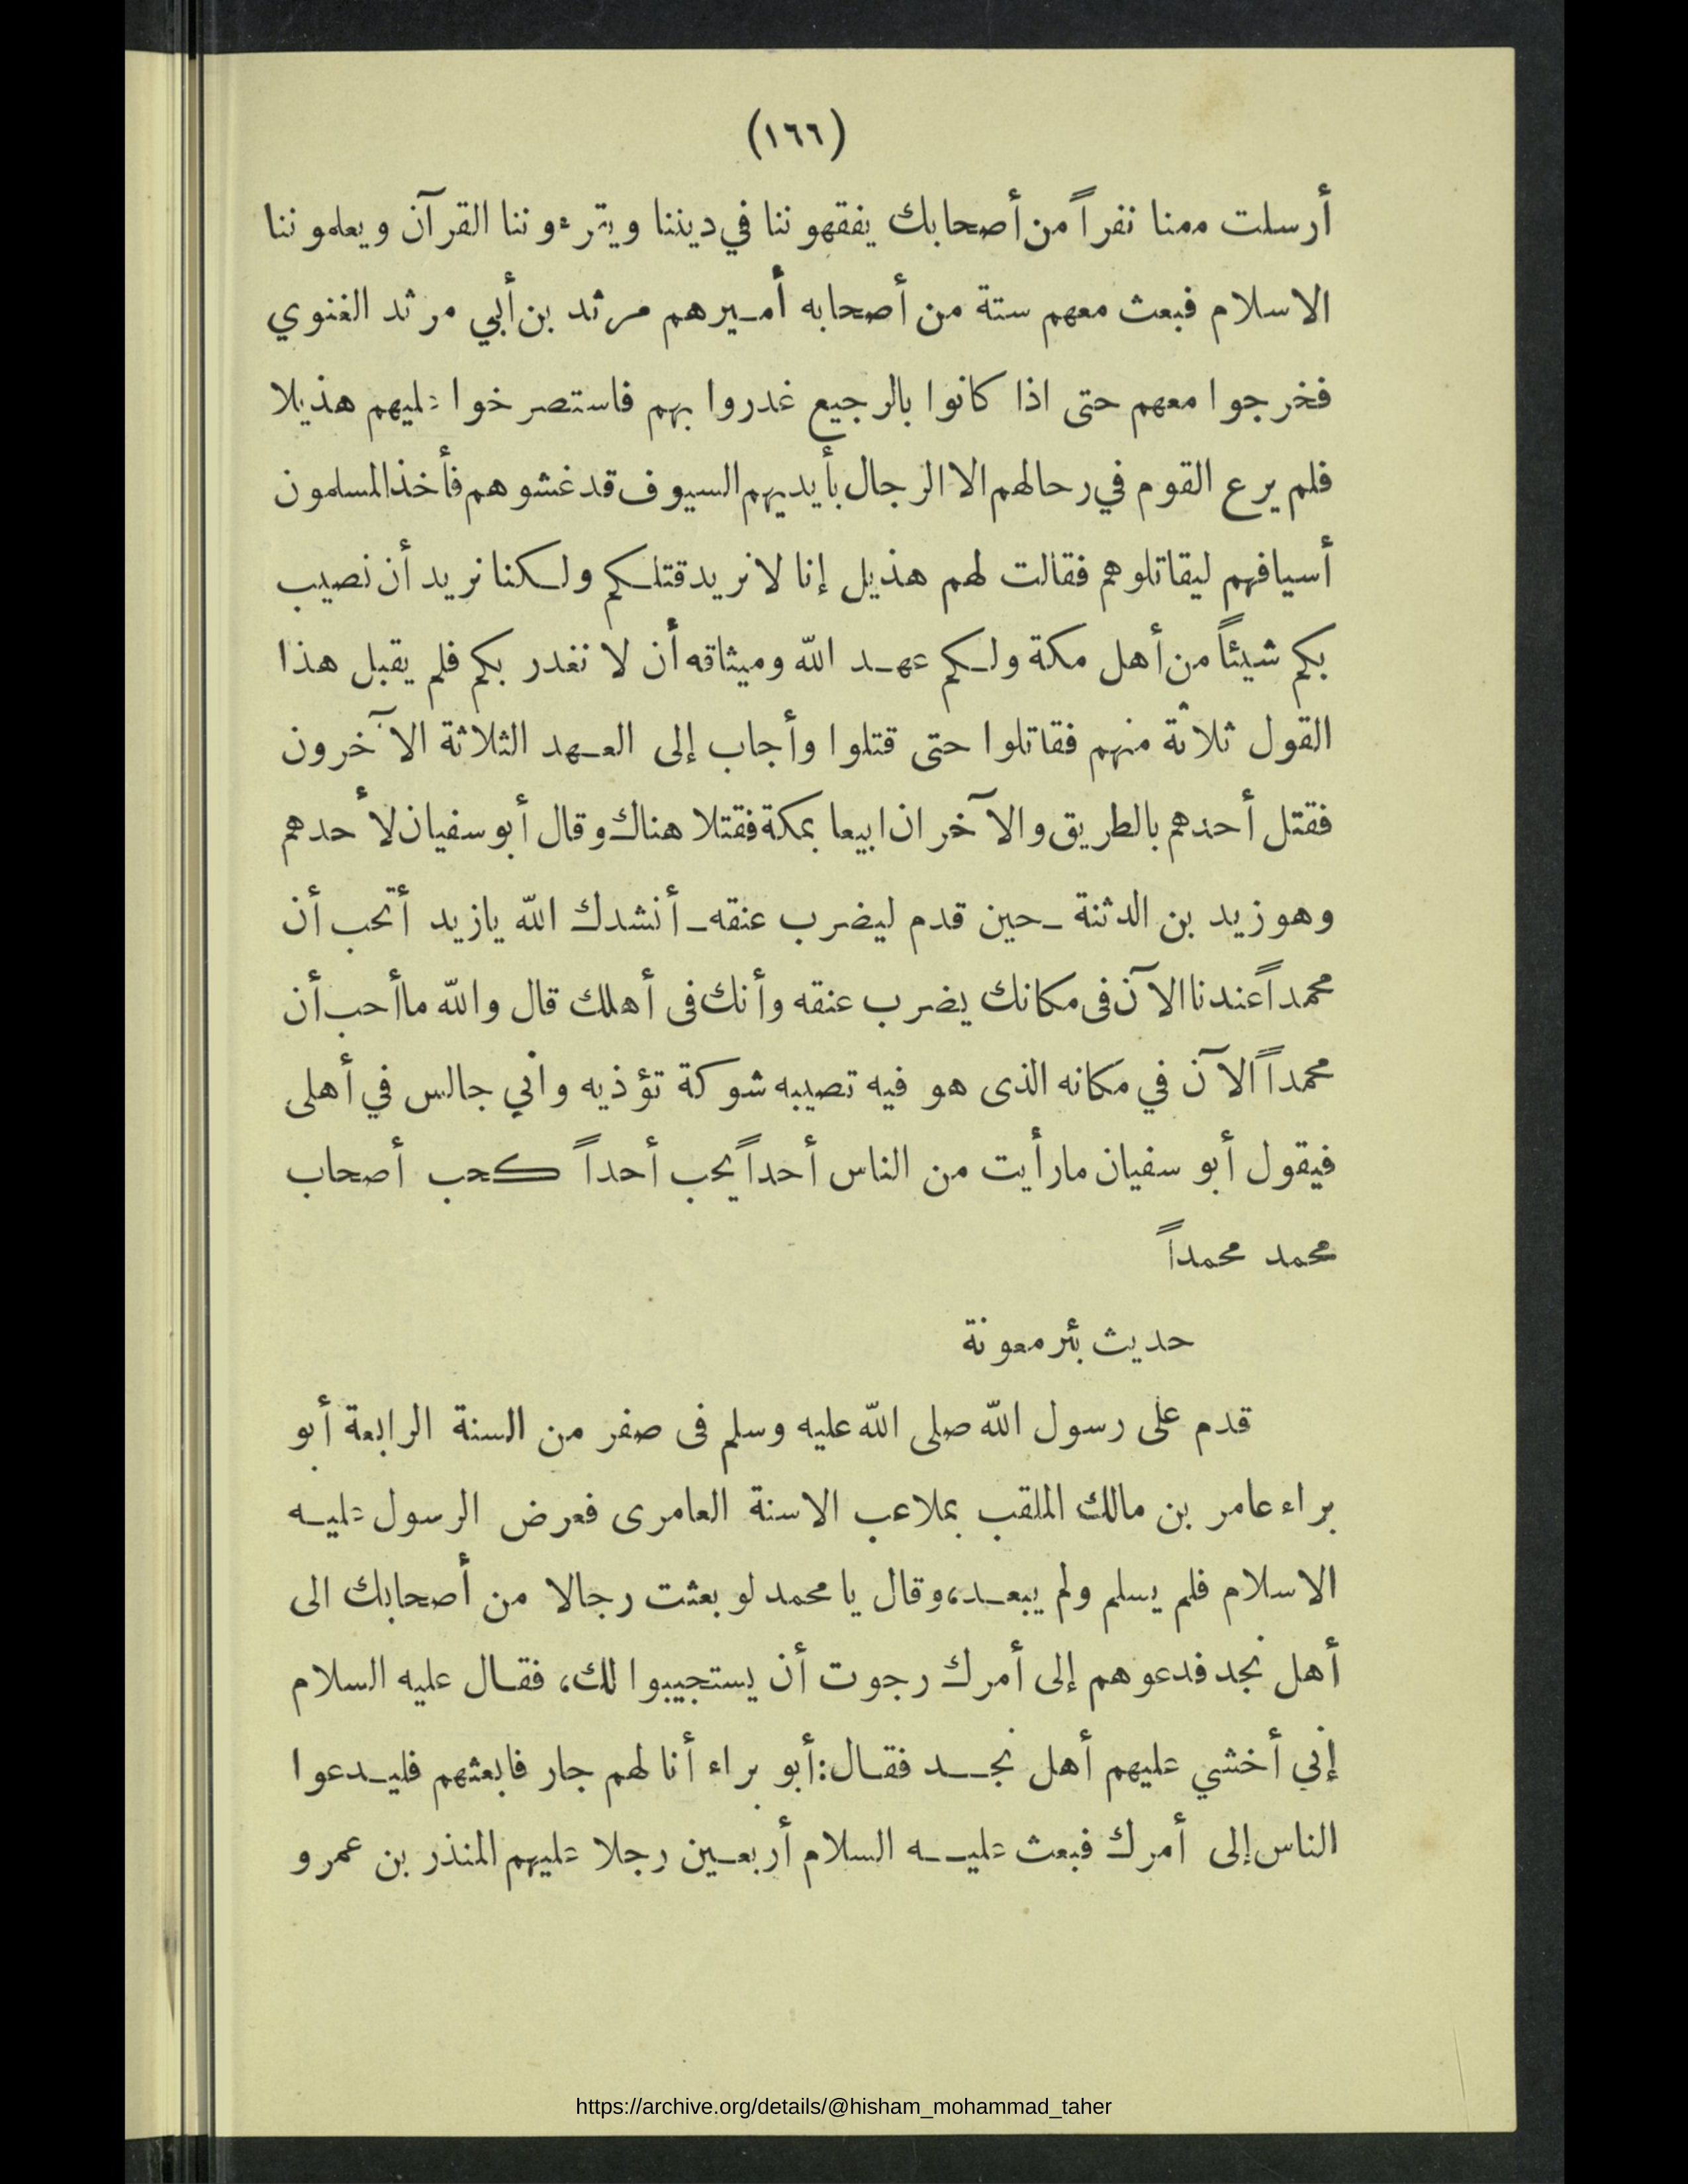 (١٦٦)
أرسلت ممنا نفراً من أصحابك يفقهوننا في ديننا ويقرءوننا القرآن ويعلموننا
الاسلام فبعث معهم ستة من أصحابه أميرهم مرثد بن أبي مرثد الغنوي
فخرجوا معهم حتى اذا كانوا بالرجيع غدروا بهم فاستصرخوا عليهم هذيلا
فلم يرع القوم في رحالهم الا الرجال بأيديهم السيوف قد غشوهم فأخذ المسلمون
أسيافهم ليقاتلوهم فقالت لهم هذيل إنا لا نريد قتلكم ولكنا نريد أن نصيب
بكم شيئاً من أهل مكة ولكم عهد الله وميثاقه أن لا نغدر بكم فلم يقبل هذا
القول ثلاثة منهم فقاتلوا حتى قتلوا وأجاب إلى العهد الثلاثة الآخرون
فقتل أحدهم بالطريق والآخران ابيعا بمكة فقتلا هناك وقال أبو سفيان لأحدهم
وهو زيد بن الدثنة ـ حين قدم ليضرب عنقه ـ أنشدك الله يازيد أتحب أن
محمداً عندنا الآن فى مكانك يضرب عنقه وأنك فى أهلك قال والله ماأحب أن
محمداً الآن في مكانه الذى هو فيه تصيبه شوكة تؤذيه واني جالس في أهلى
فيقول أبو سفيان مارأيت من الناس أحداً يحب أحداً كحب أصحاب
محمد محمداً
حديث بئر معونة
قدم على رسول الله صلى الله عليه وسلم فى صفر من السنة الرابعة أبو
براء عامر بن مالك الملقب بملاعب الاسنة العامرى فعرض الرسول عليه
الاسلام فلم يسلم ولم يبعد، وقال يا محمد لو بعثت رجالا من أصحابك الى
أهل نجد فدعوهم إلى أمرك رجوت أن يستجيبوا لك، فقال عليه السلام
إني أخشي عليهم أهل نجد فقال: أبو براء أنا لهم جار فابعثهم فليدعوا
الناس إلى أمرك فبعث عليه السلام أربعين رجلا عليهم المنذر بن عمرو
https://archive.org/details/@hisham_mohammad_taher